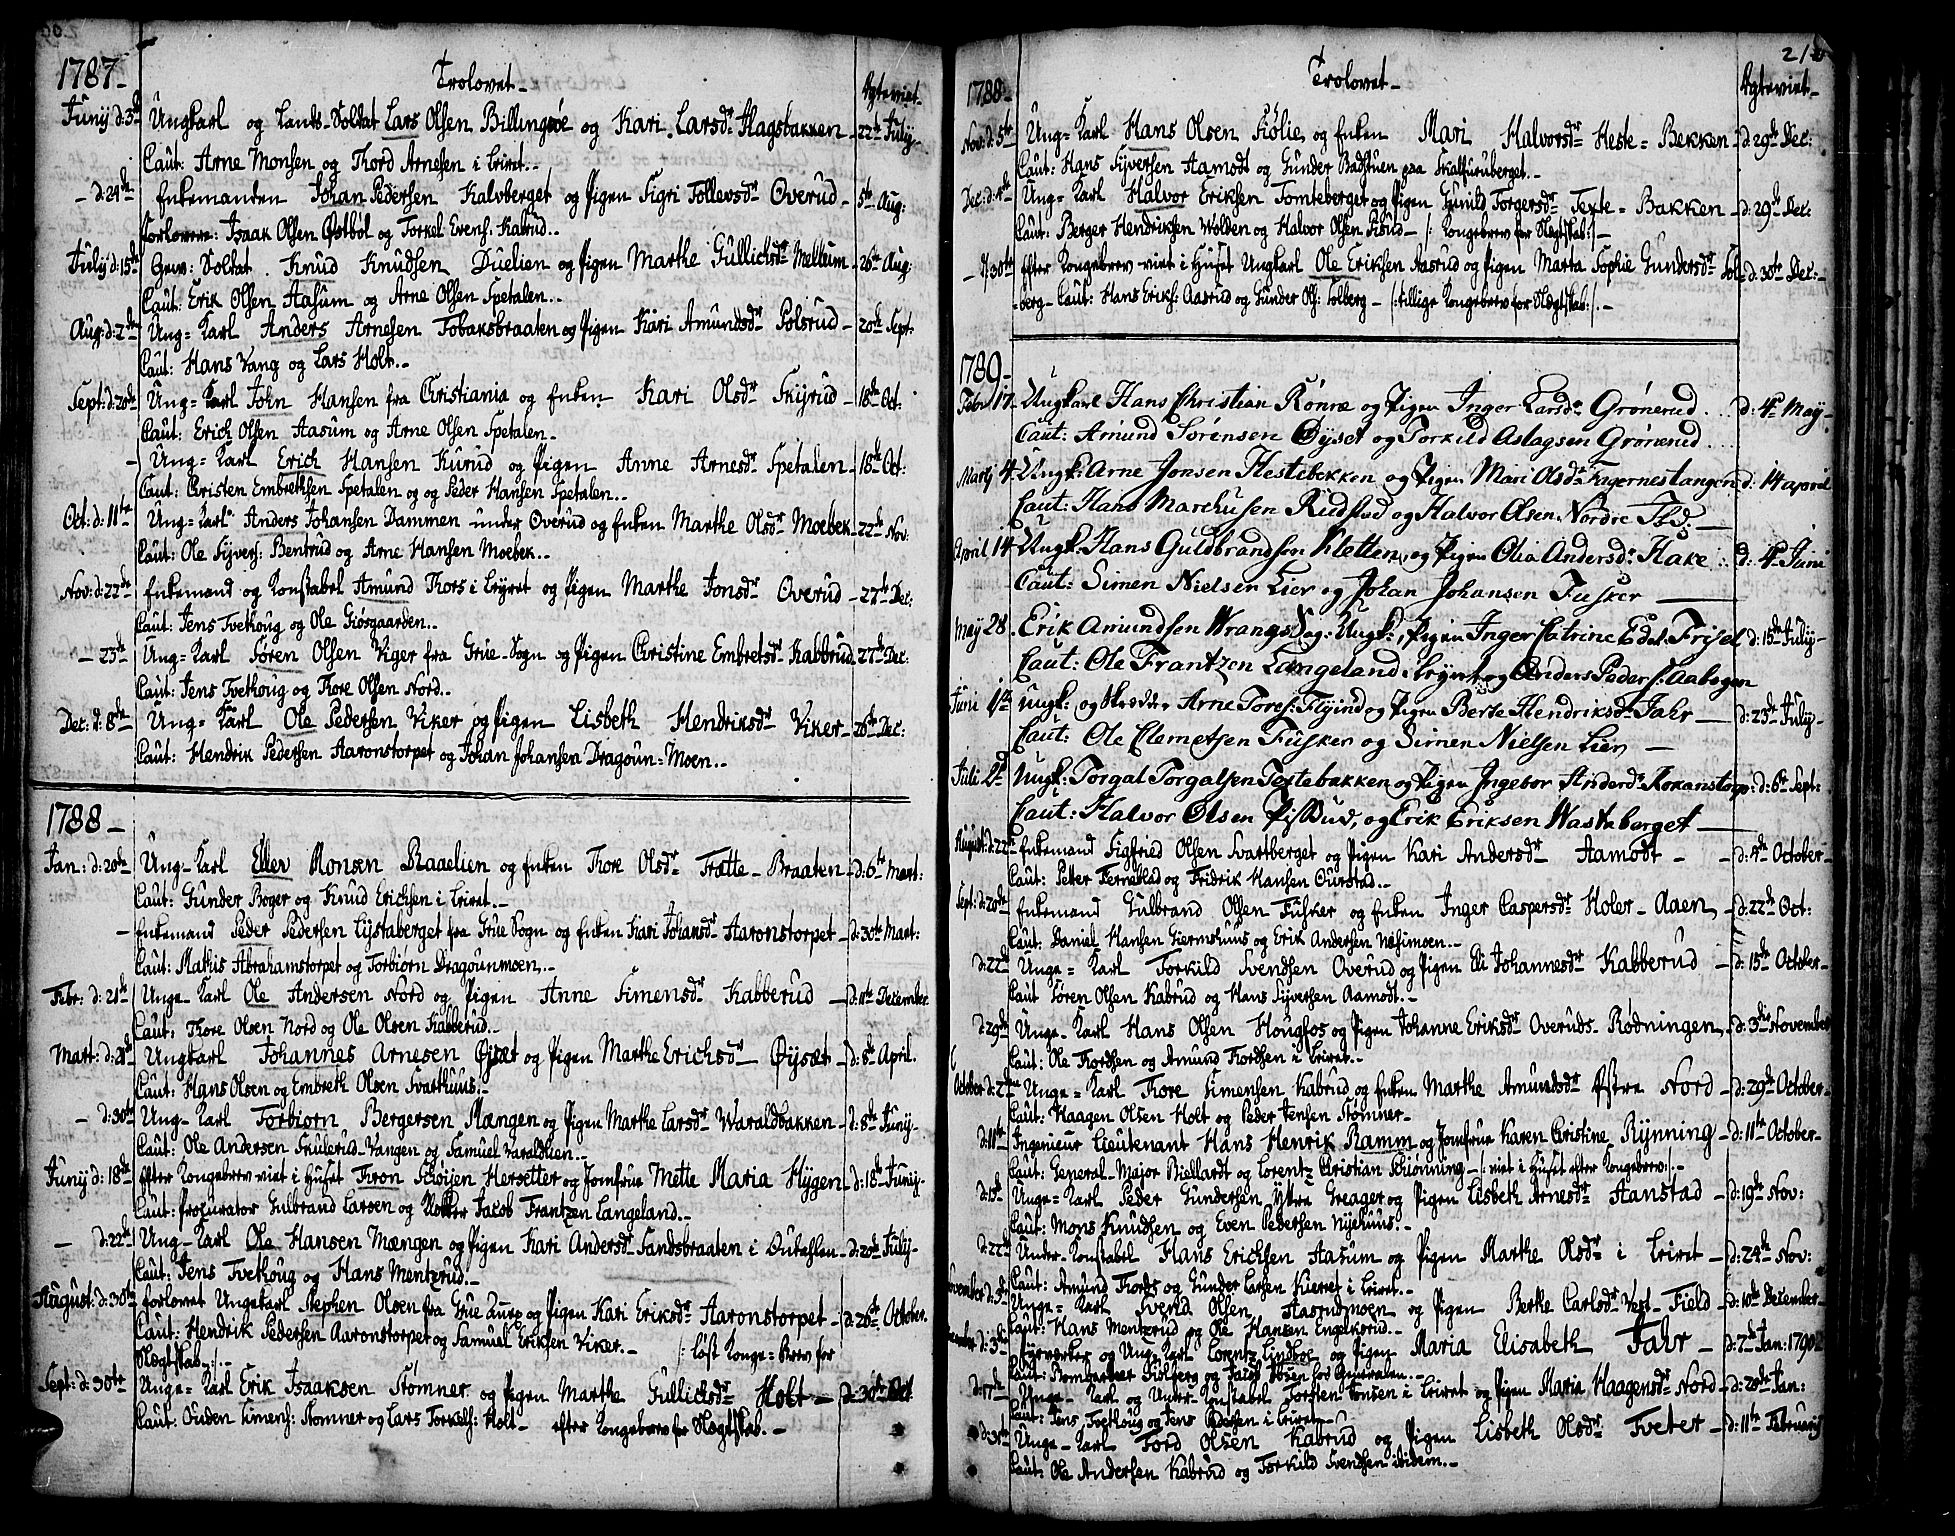 1787 Trolovet Egteviet
Junij d: 3de Ungkarl og Lands-Soldat Lars Olsen Billingsöe og Kari Larsdr Hagsbakken 22de Julij
Caut: Arne Monsen og Thord Arnesen i Leiret.
d: 29de Enkemanden Johan Pedersen Kalvberget og Pigen Sigri Tollevsdr Overud 5te Aug:
Forlovere: Isaak Olsen Østböl og Torkel Evens: Kabrud.
Julij d: 15de Gev: Soldat Knud Knudsen Duelien og Pigen Marthe Gullichsdr Mellum 26de Aug:
Caut: Erik Olsen Aasum og Arne Olsen Spetalen.
Aug: d: 2de Ung-Karl Anders Arnesen Tobaksbraaten og Pigen Kari Amundsdr Polsrud 20de Sept:
Caut: Hans Vang og Lars Holt.
Sept: d: 20de Ung-Karl John Hansen fra Christiania og Enken Kari Olsdr Skijrud 18de Oct:
Caut: Erich Olsen Aasum og Arne Olsen Spetalen
Ung-Karl Erich Hansen Kurud og Pigen Anne Arnesdr Spetalen 18de Oct:
Caut: Christen Embrethsen Spetalen og og Peder Hansen Spetalen.
Oct: d: 11te Ung-Karl Anders Johansen Dammen under Overud og Enken Marthe Olsdr Moebek 22de Nov:
Caut: Ole Syvers: Bentrud og Arne Hansen Moebek.
Nov: d: 22de Enkemand og Konstabel Amund Thors i Leyret og Pigen Marthe Jonsdr Overud 27de Dec:
Caut: Jens Tvethoug og Ole Giösgaarden.
23de Ung-Karl Sören Olsen Viger fra Grue-Sogn og Pigen Christine Embretsdr Kabbrud 27de Dec:
Caut: Jens Tvethoug og Thore Olsen Nord.
Dec: d: 8de Ung-Karl Ole Pedersen Viker og Pigen Lisbeth Hendriksdr Viker 26de Dec:
Caut: Hendrik Pedersen Aaronstorpet og Johan Johansen Dragoun-Moen.
1788
Jan: d: 20de Ung-Karl Ellev Monsen Raaelien og Enken Thore Olsdr Trætte-Braaten d: 6te Mart:
Caut: Gunder Boger og Knud Erichsen i Leiret.
Enkemand Peder Pedersen Lystaberget fra Grue Sogn og Enken Kari Johansdr Aaronstorpet d: 30te Mart:
Caut: Mathis Abrahamstorpet og Torbiørn Dragounmoen.
Febr: d: 21de Unge-Karl Ole Andersen Nord og Pigen Anne Simensdr Kabberud d: 11te December
Caut: Thore Olsen Nord og Ole Olsen Kabberud.
Mart: d: 28de Ungkarl Johannes Arnesen Øiset og Pigen Marthe Erichsdr Øijsæt d: 8de April.
Caut: Hans Olsen og Embreth Olsen Svarthuus.
d: 30te Ung-Karl Torbiørn Bergersen Mængen og Pigen Marthe Larsdr Waraldbakken d: 8de Junij
Caut: Ole Andersen Skulerud-Vangen og Samuel Varaldlien.
Junij d: 18de Efter Kongebrev viet i Huset Tron Schöijen Hersetter og Jomfrue Mette Maria Hygen d: 18de Junij
Caut: Procurator Gulbrand Larsen og Jacob Frantzen Langeland.
d: 22de Ung-Karl Ole Hansen Mængen og Pigen Kari Andersdr Sandsbraaten i Outahlen d: 20de Julij
Caut: Jens Tvethoug og Hans Mentzrud.
August: d: 30te forlovet Ungekarl Stephen Olsen fra Grue og Pigen Kari Eriksdr Aaronstorpet d: 26de October.
Caut: Hendrik Pedersen Aaronstorpet og Samuel Eriksen Viker. /: löst Konge-Brev for
Slægtskab :/.
Sept: d: 30te Unge-Karl Erik Isaaksen Stömner og Pigen Marthe Gullichsdr Holt d: 30te Oct
Caut: Ouden Simens: Stomner og Lars Torkels: Holt efter Kongebrev for Slægtskab.
210
1788 Trolovet Egteviet
Nov: d: 5te Ung-Karl Hans Olsen Fiölie og Enken Mari Halvorsdr Heste-Bekken d: 29de Dec:
Caut: Hans Syversen Aamodt og Gunder Badstuen paa Skalfuruberget.
Dec: d: 4de Ung-Karl Halvor Eriksen Tomteberget og Pigen Gunild Torgersdr Texte-Bakken d: 29de Dec:
Caut: Berger Hendriksen Wolden og Halvor Olsen Pisud /: Kongebrev for Slægtskab :/
d: 30te Efter Kongebrev viet i Huset Ungkarl Ole Eriksen Aasrud og Pigen Marta Sophie Gundersdr Sol- d: 30te Dec:
berg Caut: Hans Eriks: Aasrud og Gunder Ols: Solberg /: tillige Kongebrev for Slægtskab :/.
1789
Febr 17 Ungkarl Hans Christian Rönræ og Pigen Inger Larsdr Grönerud d: 4de May
Caut: Amund Sörensen Öyset og Torkild Aslagsen Grönerud
Marty 4 Ungk: Arne Jonsen Hestebekken og Pigen Mari Olsdr Fagernestangen d: 14 april
Caut: Hans Marchusen Rudstad og Halvor Olsen Nordre
April 14 Ungk: Hans Guldbrandsen Kletten og Pigen Olia Andersdr Hake d: 4de Juni
Caut: Simen Nielsen Lier og Johan Johansen Fusker
May 28 Erik Amundsen Wrangs Ungk: Pigen Inger Catrine Frisel d: 15de Julij
Caut: Ole Frantzen Langeland i Leyret og Anders Peders: Aabogen
Juni 1te Ungk: og Skredder Arne Tores: Flyind og Pigen Berte Hendriksdr Jahr d: 23de Julij
Caut: Ole Clemetsen Fusker og Simen Nielsen Lier
Juli 2d Ungk: Torgal Torgalsen Textebakken og Pigen Ingebor Andersdr Rokanstorp d: 6te Sept:
Caut: Halvor Olsen Pissud, og Erik Eriksen Wastaberget
August: d: 22de Enkemand Sigfried Olsen Svartberget og Pigen Kari Andersdr Aamodt d: 4de October
Caut: Petter Ferneslad og Fridrik Hansen Ourstad.
Sept: d: 20de Enkemand Gulbrand Olsen Fusker og Enken Inger Caspersdr Holer-Aaen d: 22de Oct:
Caut: Daniel Hansen Giermshuus og Erik Andersen Næsimoen.
d: 22de Unge-Karl Torkild Svendsen Overud og Pigen Eli Johannesdr Kabberud d: 15de October
Caut Sören Olsen Kabrud og Hans Syversen Aamodt.
d: 29de Unge-Karl Hans Olsen Hougfos og Pigen Johanne Eriksdr Overuds-Rodningen d: 3die November
Caut: Ole Tordsen og Amund Tordsen i Leiret.
October d: 2den Unge-Karl Thore Simensen Kabrud og Enken Marthe Amundsdr Østre Nord d: 29de October
Caut: Haagen Olsen Holt og Peder Jensen Stömner
d: 11te Ingenieur Lieutenant Hans Henrik Ramm og Jomfrue Karen Christine Rynning d: 11te October
Caut: General-Major Biellardt og Lorentz Christian Schiønning /: viet i Huset efter Kongebrev :/.
d: 15de Unge-Karl Peder Gundersen Yttre Greager og Pigen Lisbeth Arnesdr Aanstad d: 19de Nov:
Caut: Mons Knudsen og Even Pedersen Nyehuus.
d: 22de Under-Konstabel Hans Erichsen Aasum og Pigen Marthe Olsdr i Leiret d: 24de Nov:
Caut: Amund Thords og Gunder Larsen Kierret i Leiret.
November d: 3die Unge-Karl Svend Olsen Aasrudmoen og Pigen Berthe Carlsdr Vest-Field d: 10de December
Caut: Hans Mentzrud og Ole Hansen Engelksrud.
December d: 3die Fyrverker og Ung-Karl Lorentz Lindboe og Pigen Maria Elisabeth Jahr d: 2de Jan: 1790
Caut: Bombardeer Solberg og Jacob
d: 17de Unge-Karl og Under-Konstabel Torsten Jonsen i Leiret og Pigen Maria Haagensdr Nord d: 20de Jan:
Caut: Jens Tvethoug og Jens Pedersen i Leiret
d: 31te Unge-Karl Tord Olsen Kabrud og Pigen Lisbeth Olsdr Tveter d: 11te Februarij
Caut: Ole Andersen Kabrud og Torkild Svendsen ibidem.